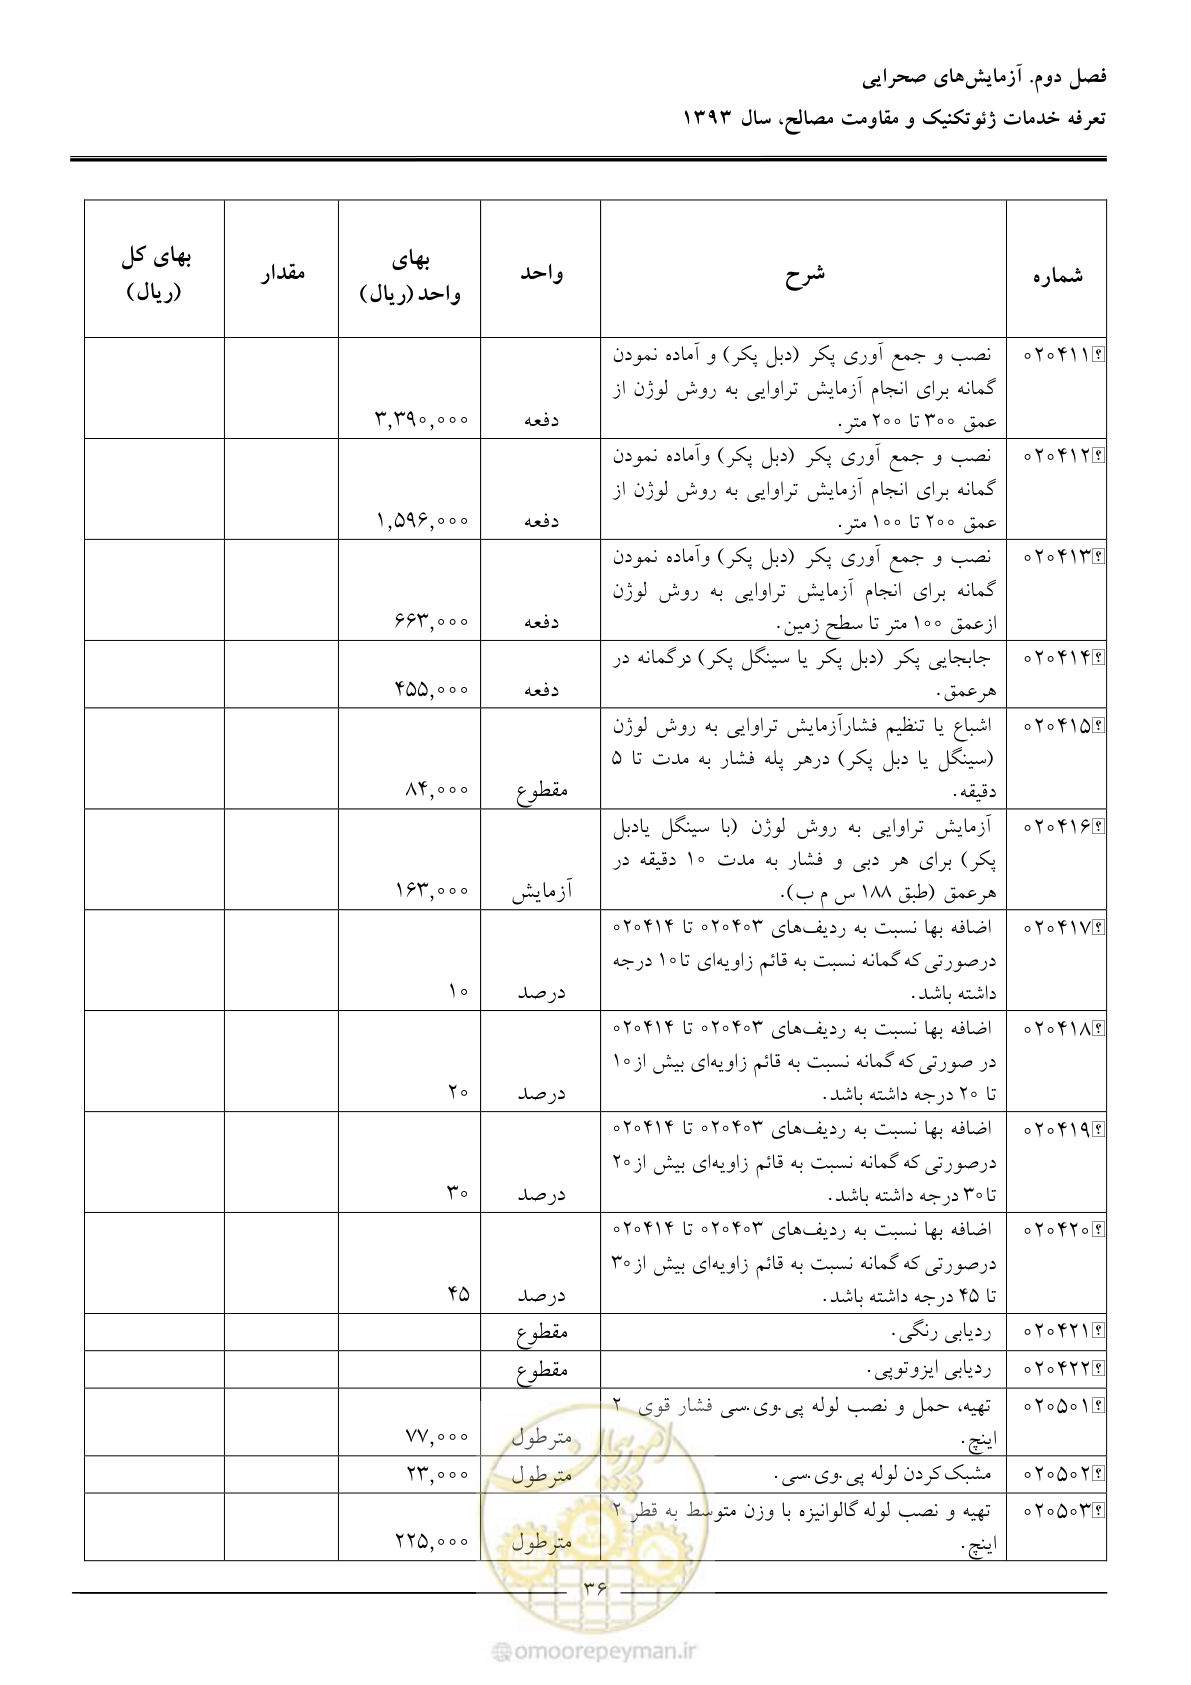 فصل دوم. آزمایش‌های صحرایی
تعرفه خدمات ژئوتکنیک و مقاومت مصالح، سال ۱۳۹۳
شماره
شرح
واحد
بهای
واحد(ریال)
مقدار
بهای کل
(ریال)
۰۲۰۴۱۱
نصب و جمع آوری پکر (دبل پکر) و آماده نمودن
گمانه برای انجام آزمایش تراوایی به روش لوژن از
عمق ۳۰۰ تا ۲۰۰ متر.
دفعه
۳,۳۹۰,۰۰۰
۰۲۰۴۱۲
نصب و جمع آوری پکر (دبل پکر) وآماده نمودن
گمانه برای انجام آزمایش تراوایی به روش لوژن از
عمق ۲۰۰ تا ۱۰۰ متر.
دفعه
۱,۵۹۶,۰۰۰
۰۲۰۴۱۳
نصب و جمع آوری پکر (دبل پکر) وآماده نمودن
گمانه برای انجام آزمایش تراوایی به روش لوژن
ازعمق ۱۰۰ متر تا سطح زمین.
دفعه
۶۶۳,۰۰۰
۰۲۰۴۱۴
جابجایی پکر (دبل پکر یا سینگل پکر) درگمانه در
هرعمق.
دفعه
۴۵۵,۰۰۰
۰۲۰۴۱۵
اشباع یا تنظیم فشارآزمایش تراوایی به روش لوژن
(سینگل یا دبل پکر) درهر پله فشار به مدت تا ۵
دقیقه.
مقطوع
۸۴,۰۰۰
۰۲۰۴۱۶
آزمایش تراوایی به روش لوژن (با سینگل یادبل
پکر) برای هر دبی و فشار به مدت ۱۰ دقیقه در
هرعمق (طبق ۱۸۸ س م ب).
آزمایش
۱۶۳,۰۰۰
۰۲۰۴۱۷
اضافه بها نسبت به ردیف‌های ۰۲۰۴۰۳ تا ۰۲۰۴۱۴
درصورتی‌که گمانه نسبت به قائم زاویه‌ای تا۱۰ درجه
داشته باشد.
درصد
۱۰
۰۲۰۴۱۸
اضافه بها نسبت به ردیف‌های ۰۲۰۴۰۳ تا ۰۲۰۴۱۴
در صورتی‌که گمانه نسبت به قائم زاویه‌ای بیش از۱۰
تا ۲۰ درجه داشته باشد.
درصد
۲۰
۰۲۰۴۱۹
اضافه بها نسبت به ردیف‌های ۰۲۰۴۰۳ تا ۰۲۰۴۱۴
درصورتی‌که گمانه نسبت به قائم زاویه‌ای بیش از۲۰
تا۳۰ درجه داشته باشد.
درصد
۳۰
۰۲۰۴۲۰
اضافه بها نسبت به ردیف‌های ۰۲۰۴۰۳ تا ۰۲۰۴۱۴
درصورتی‌که گمانه نسبت به قائم زاویه‌ای بیش از۳۰
تا ۴۵ درجه داشته باشد.
درصد
۴۵
۰۲۰۴۲۱
ردیابی رنگی.
مقطوع
۰۲۰۴۲۲
ردیابی ایزوتوپی.
مقطوع
۰۲۰۵۰۱
تهیه، حمل و نصب لوله پی.وی.سی فشار قوی ۲
اینچ.
مترطول
۷۷,۰۰۰
۰۲۰۵۰۲
مشبک‌کردن لوله پی.وی.سی.
مترطول
۲۳,۰۰۰
۰۲۰۵۰۳
تهیه و نصب لوله گالوانیزه با وزن متوسط به قطر ۲
اینچ.
مترطول
۲۲۵,۰۰۰
امور پیمان
۳۶
@omoorepeyman.ir